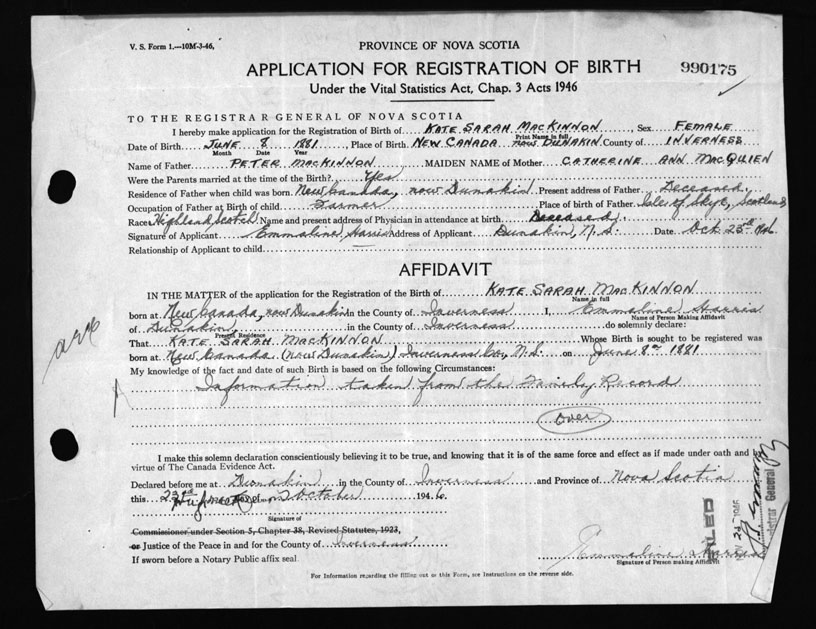 V. S. Form 1.—10M-3-46,
PROVINCE OF NOVA SCOTIA
APPLICATION FOR REGISTRATION OF BIRTH
990175
Under the Vital Statistics Act, Chap. 3 Acts 1946
TO THE REGISTRAR GENERAL OF NOVA SCOTIA
I hereby make application for the Registration of Birth of KATE SARAH MACKINNON Sex FEMALE
Print Name in full
Date of Birth JUNE 8 1881, Place of Birth NEW CANADA NOW DUNAKIN County of INVERNESS
Month Date Year
Name of Father PETER MACKINNON MAIDEN NAME of Mother CATHERINE ANN MACQUIEN
Were the Parents married at the time of the Birth? Yes
Residence of Father when child was born New Canada, now Dunakin Present address of Father Deceased
Occupation of Father at Birth of child Farmer Place of birth of Father Isle of Skye, Scotland
Race Highland Scotch Name and present address of Physician in attendance at birth Deceased.
Signature of Applicant Emmaline Harris Address of Applicant Dunakin, N.S. Date Oct 23rd 1946
Relationship of Applicant to child —
AFFIDAVIT
IN THE MATTER of the application for the Registration of the Birth of KATE SARAH MACKINNON
Name in full
born at New Canada, now Dunakin in the County of Inverness I, Emmaline Harris
Name of Person Making Affidavit
of Dunakin, in the County of Inverness do solemnly declare:
Present Residence
That KATE SARAH MACKINNON Whose Birth is sought to be registered was
born at New Canada (now Dunakin) Inverness Co., N.S. on June 8th 1881
My knowledge of the fact and date of such Birth is based on the following Circumstances:
Information taken from the Family Record
over
I make this solemn declaration conscientiously believing it to be true, and knowing that it is of the same force and effect as if made under oath and by
virtue of The Canada Evidence Act.
Declared before me at Dunakin in the County of Inverness and Province of Nova Scotia
this 23rd day of October 1946.
Signature of
Commissioner under Section 5, Chapter 38, Revised Statutes, 1923,
or Justice of the Peace in and for the County of Inverness
If sworn before a Notary Public affix seal.
Emmaline Harris
Signature of Person making Affidavit
FILED
For Information regarding the filling out of this Form, see Instructions on the reverse side.